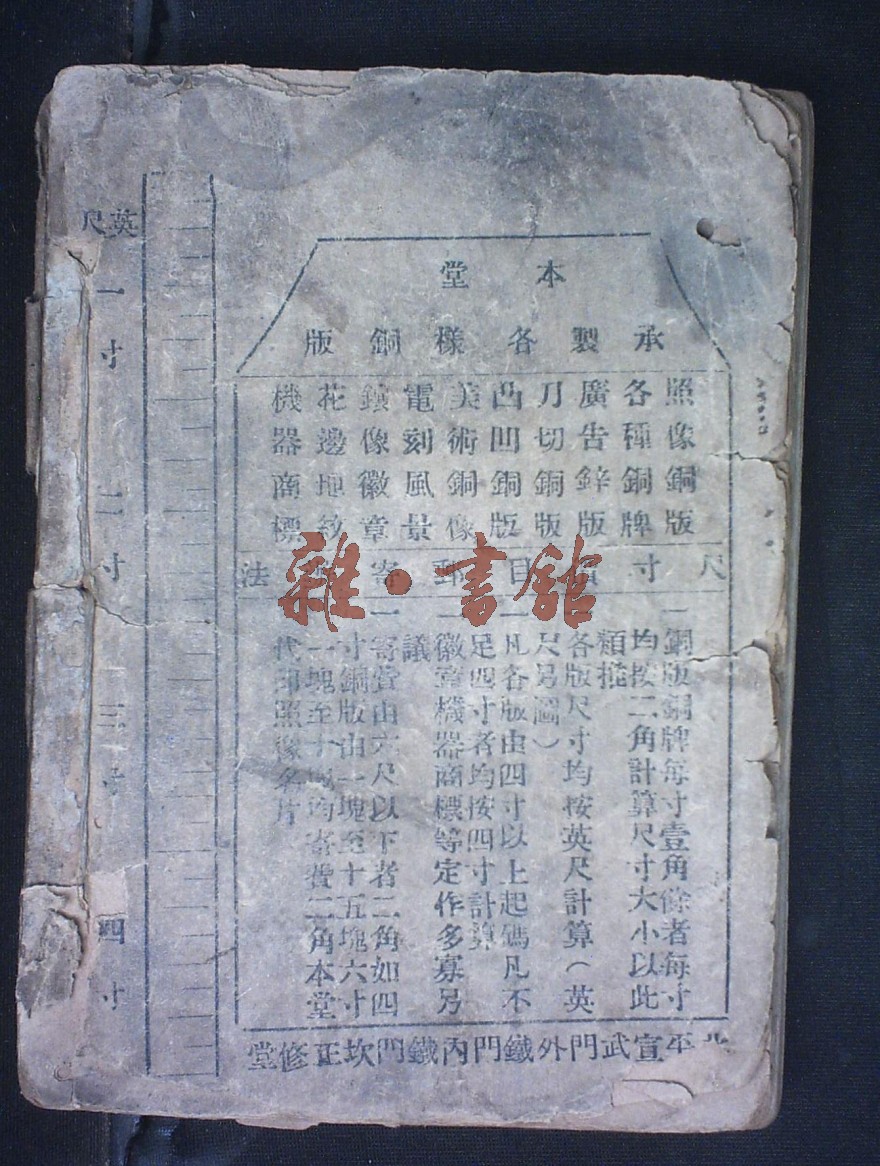 本堂
承製各樣銅版
照像銅版
各種銅牌
廣告鋅版
刀切銅版
凸凹銅版
美術銅像
電刻風景
鏡像徽章
花邊地紋
機器商標
尺寸價目郵寄法
一銅版銅牌每寸壹角餘者每寸
均按二角計算尺寸大小以此
類推
各版尺寸均按英尺計算（英
尺另圖）
一凡各版由四寸以上起碼凡不
足四寸者均按四寸計算
一徽章機器商標等定作多寡另
議
一寄費由六尺以下者二角如四
寸銅版由一塊至十五塊六寸
一塊至十塊均寄費二角本堂
代印照像名片
北平宣武門外鐵門內鐵門坎正修堂
英尺
一寸
二寸
三寸
四寸
雜·書館